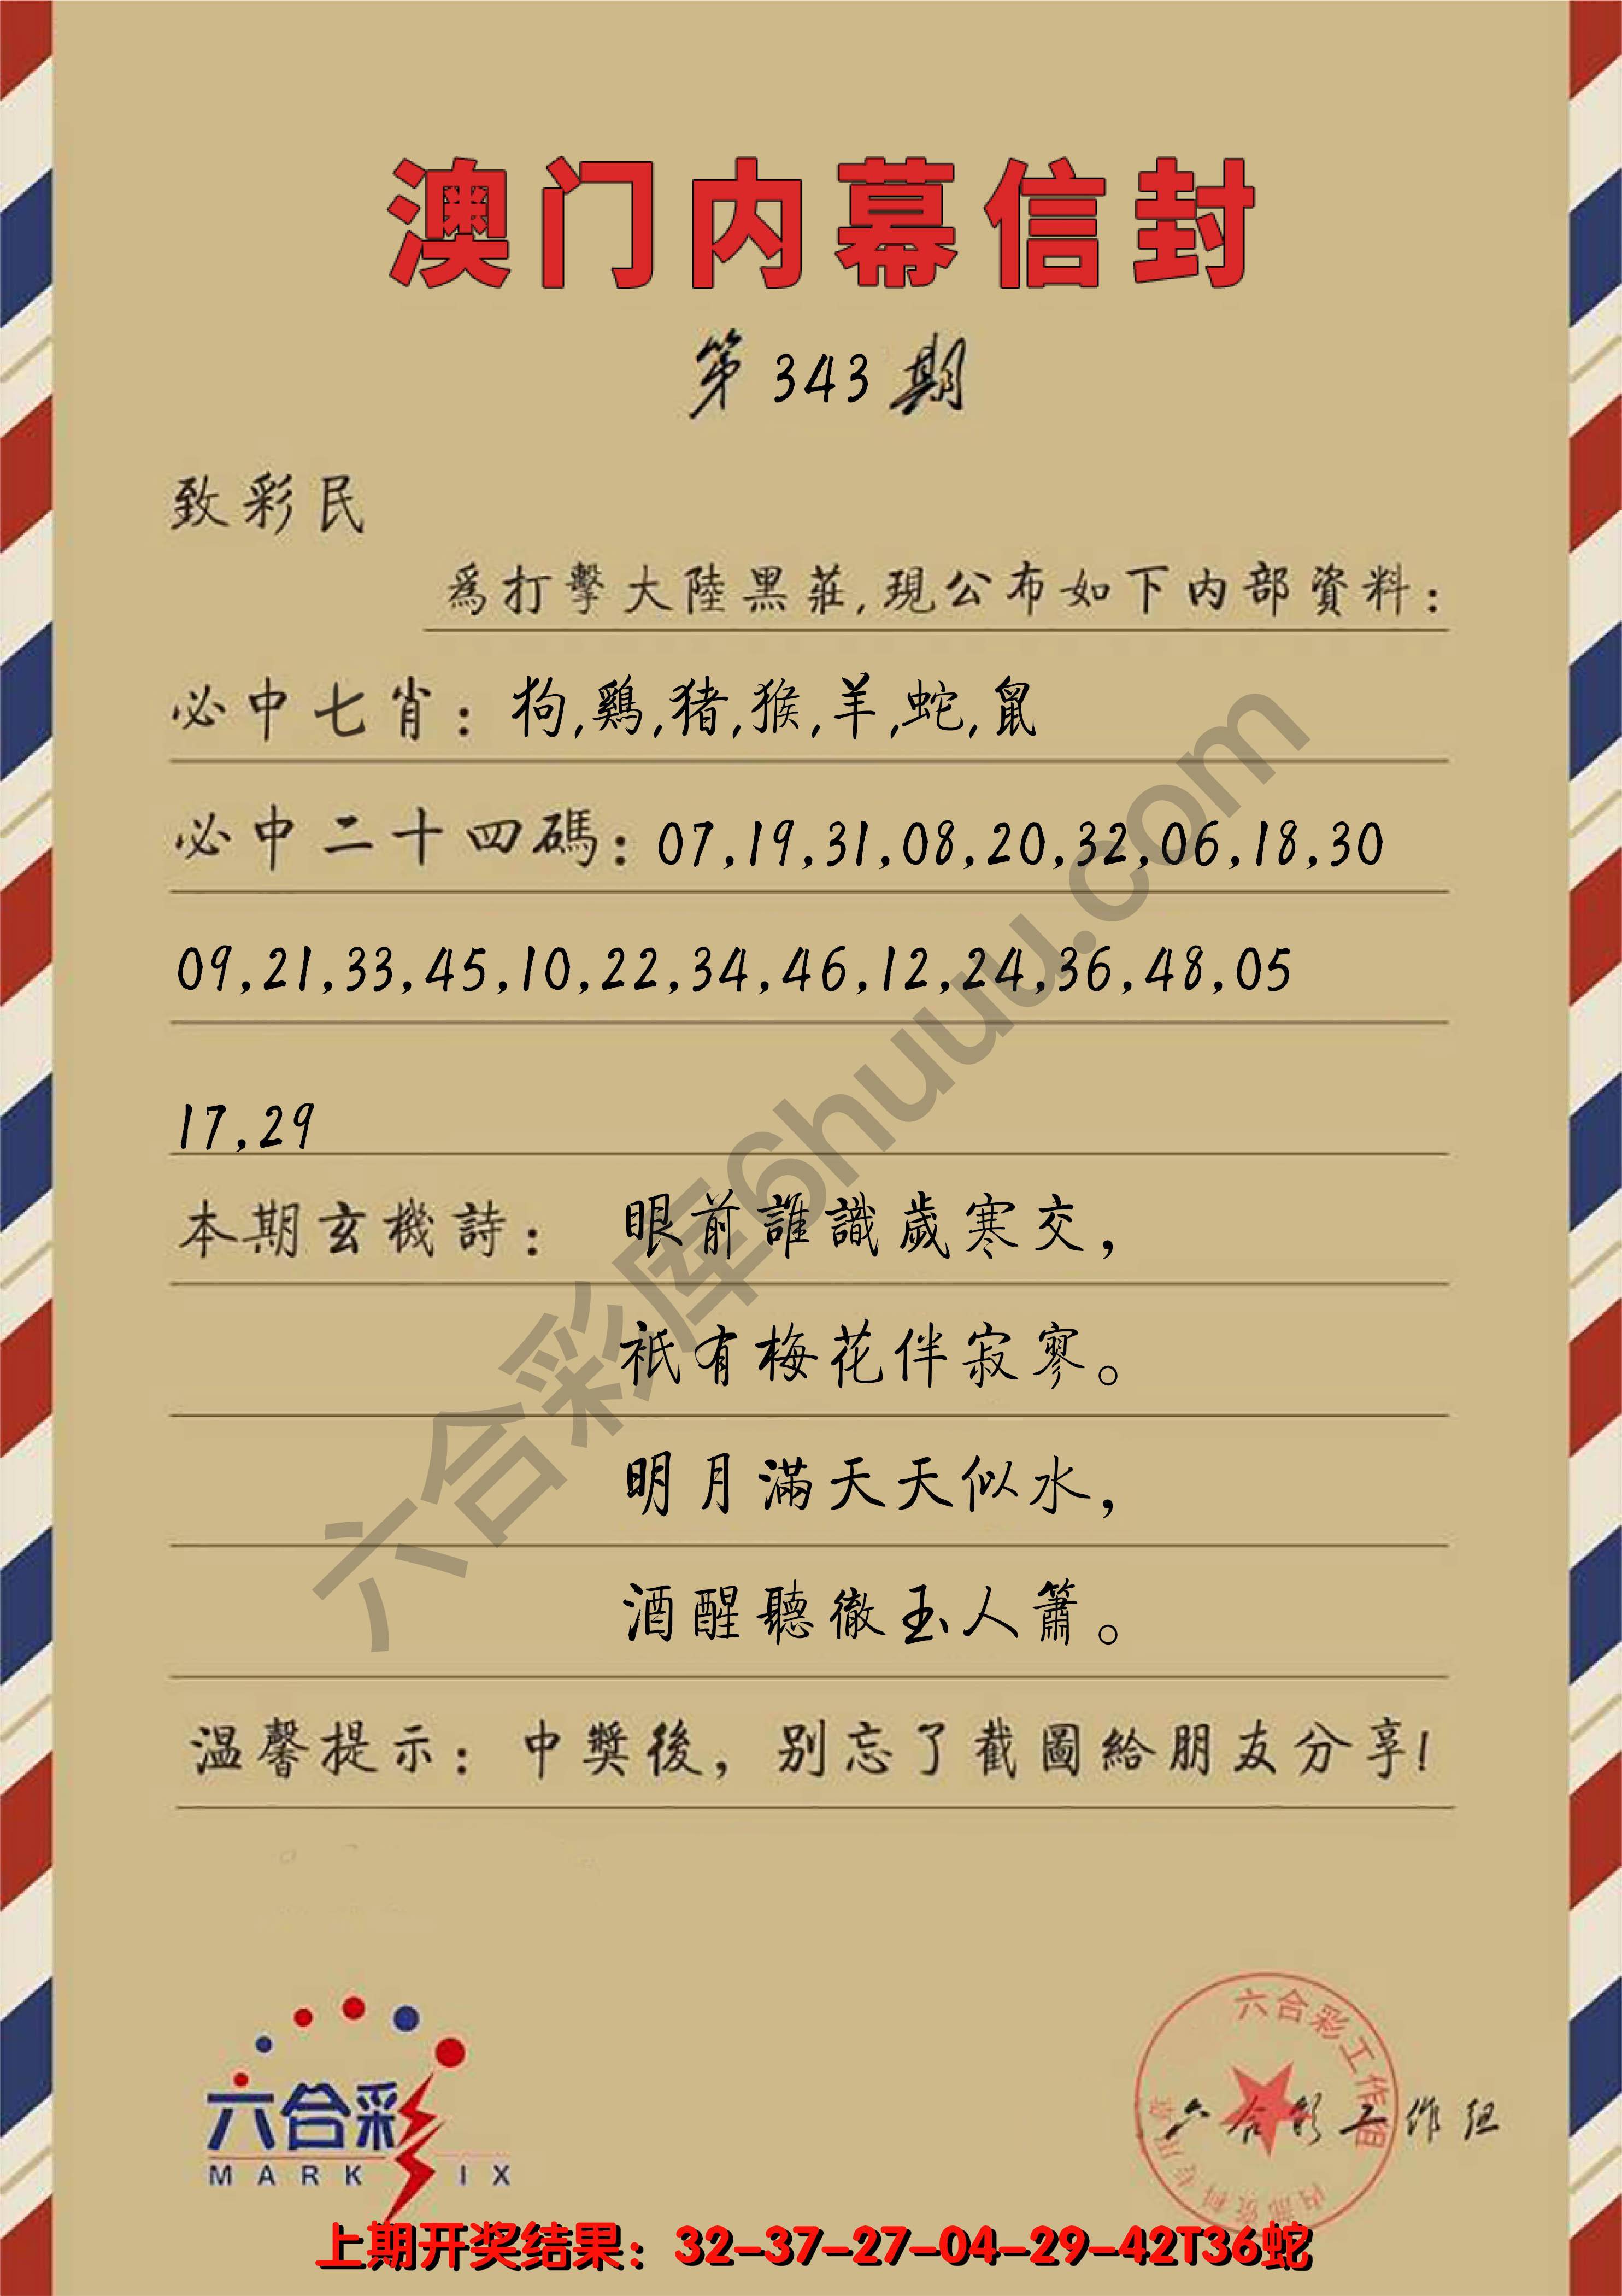 澳门内幕信封
第343期
致彩民
爲打擊大陸黑莊,現公布如下内部資料:
必中七肖:狗,鷄,猪,猴,羊,蛇,鼠
必中二十四碼:07,19,31,08,20,32,06,18,30
09,21,33,45,10,22,34,46,12,24,36,48,05
17,29
本期玄機詩:眼前誰識歲寒交,
祇有梅花伴寂寥。
明月滿天天似水,
酒醒聽徹玉人簫。
温馨提示:中獎後,别忘了截圖給朋友分享!
六合彩库6huuu.com
六合彩
MARK IX
六合彩工作组
内部资料专用章
六合彩工作组
上期开奖结果:32-37-27-04-29-42T36蛇